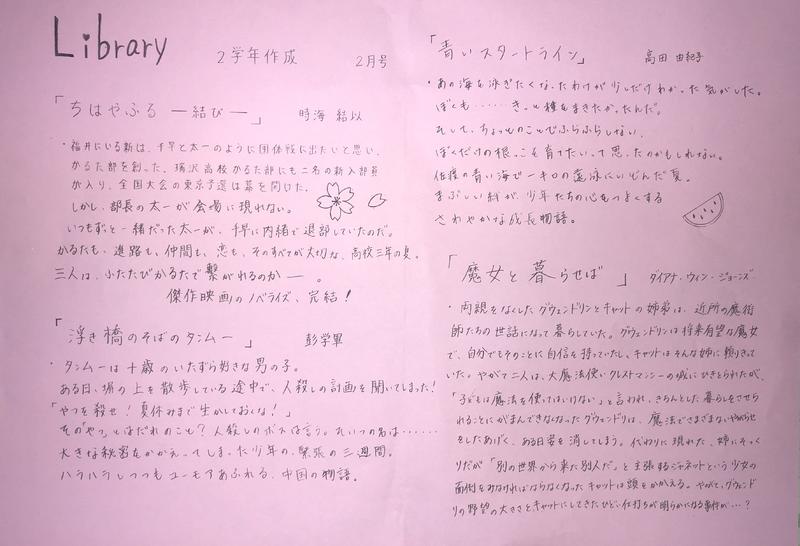 Library 2学年作成 2月号
「ちはやふる ー結びー」 時海 結以
・福井にいる新は、千早と太一のように団体戦に出たいと思い、
かるた部を創った。瑞沢高校かるた部にも二名の新入部員
が入り、全国大会の東京予選は幕を開けた。
しかし、部長の太一が会場に現れない。
いつもずっと一緒だった太一が、千早に内緒で退部していたのだ。
かるたも、進路も、仲間も、恋も、そのすべてが大切な、高校三年の夏。
三人は、ふたたびかるたで繋がれるのか ー 。
傑作映画のノベライズ、完結!
「浮き橋のそばのタンムー」 彭学軍
・タンムーは十歳のいたずら好きな男の子。
ある日、塀の上を散歩している途中で、人殺しの計画を聞いてしまった!
「やつを殺せ!夏休みまで生かしておくな!」
その「やつ」とはだれのこと?人殺しのボスは言う。そいつの名は……
大きな秘密をかかえてしまった少年の、緊張の三週間。
ハラハラしつつもユーモアあふれる、中国の物語。
「青いスタートライン」 高田 由紀子
・あの海を泳ぎたくなったわけが少しだけわかった気がした。
ぼくも……きっと種をまきたかったんだ。
そして、ちょっとのことでふらふらしない、
ぼくだけの根っこを育てたいって思ったのかもしれない。
佐渡の青い海で一キロの遠泳にいどんだ夏。
まぶしい絆が、少年たちの心をつよくする
さわやかな成長物語。
「魔女と暮らせば 」 ダイアナ・ウィン・ジョーンズ
・両親をなくしたグウェンドリンとキャットの姉弟は、近所の魔術
師たちの世話になって暮らしていた。グウェンドリンは将来有望な魔女
で、自分でもそのことに自信を持っていたし、キャットはそんな姉に頼りきって
いた。やがて二人は、大魔法使いクレストマンシーの城にひきとられたが、
「子どもは魔法を使ってはいけない」と言われ、きちんとした暮らしをさせら
れることにがまんできなくなったグウェンドリンは、魔法でさまざまないやがらせ
をしたあげく、ある日姿を消してしまう。代わりに現れた、姉にそっく
りだが「別の世界から来た別人だ」と主張するジャネットという少女の
面倒をみなければならなくなったキャットは頭をかかえる。やがて、グウェンド
リの野望の大きさとキャットにしてきたひどい仕打ちが明らかになる事件が…?